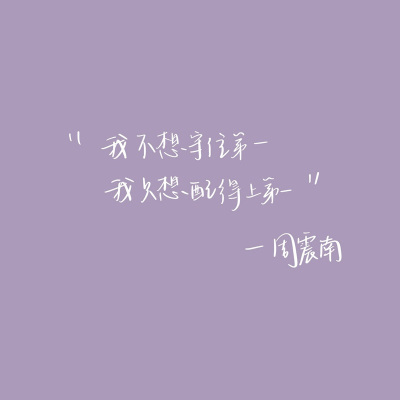 "我不想守住第一
我只想配得上第一"
—周震南